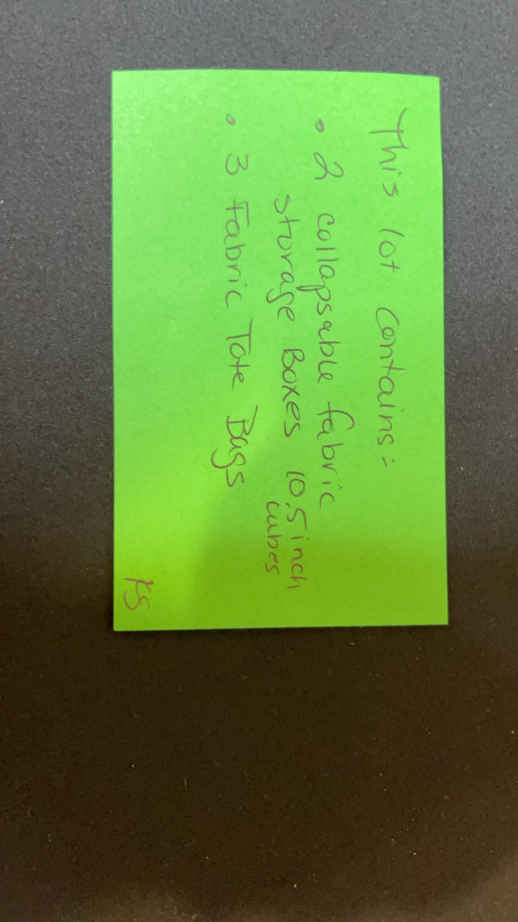 This lot contains:
• 2 collapsable fabric
storage Boxes 10.5 inch
cubes
• 3 Fabric Tote Bags
KS